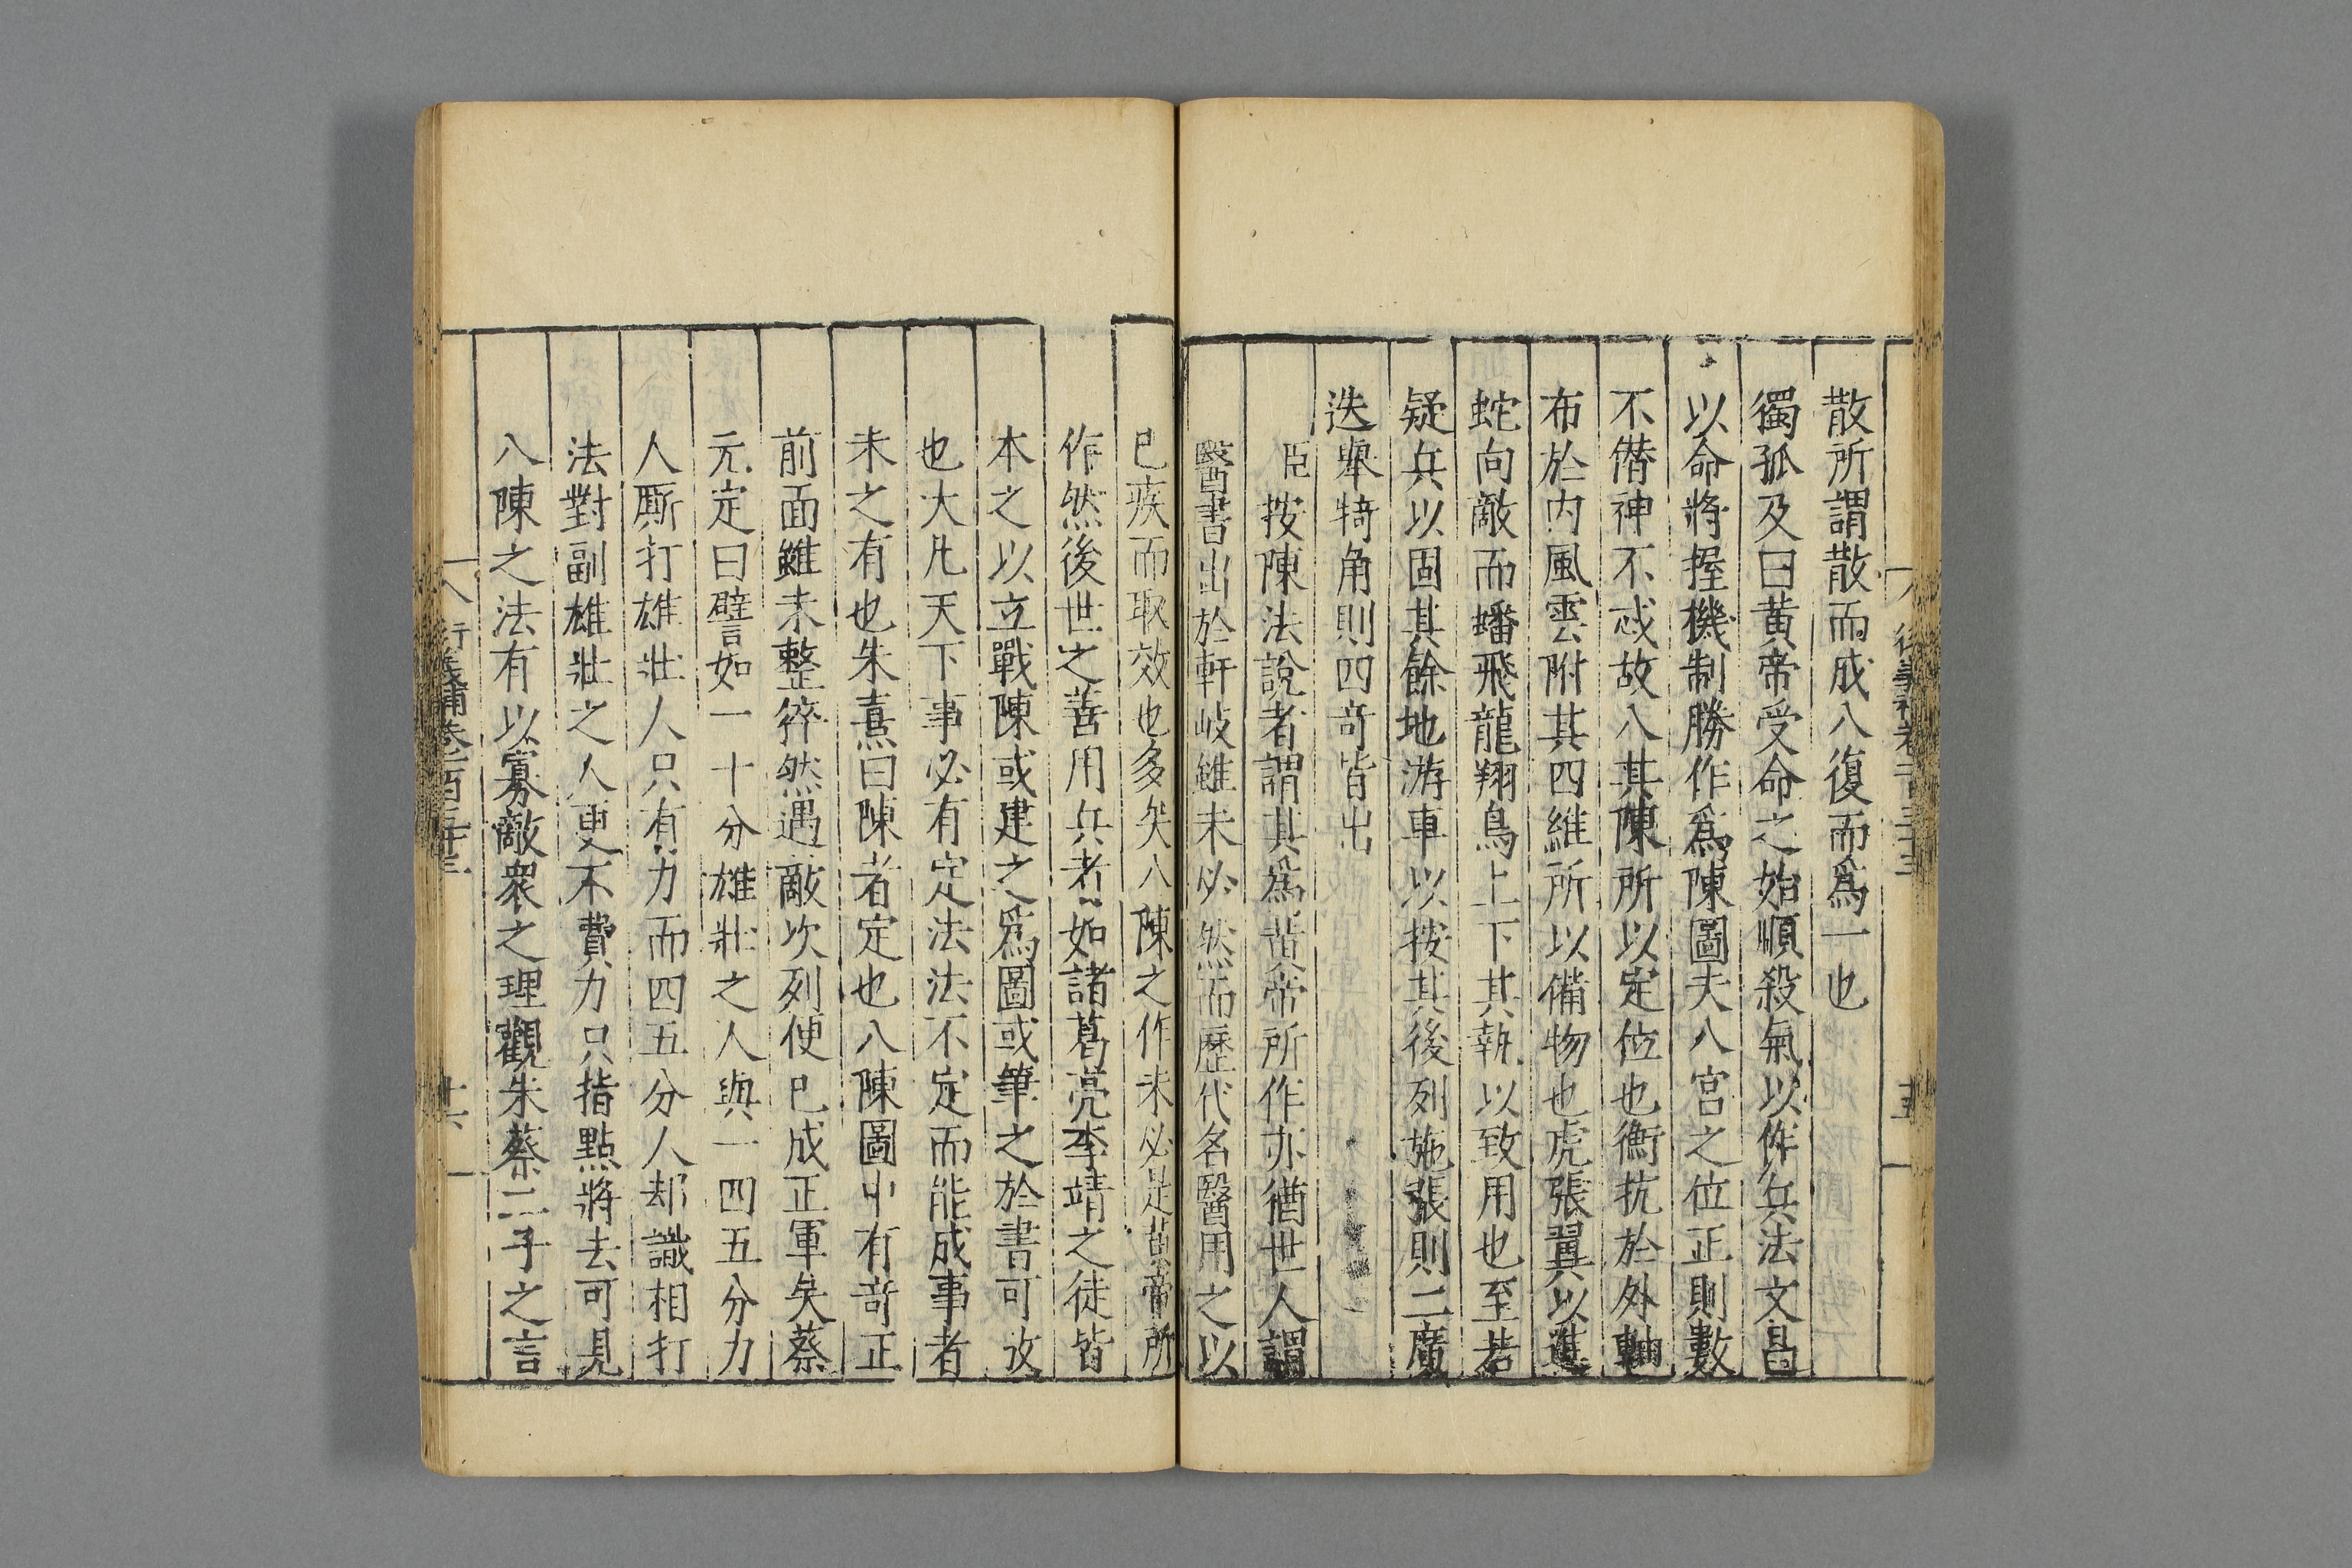 散所謂散而成八復而爲一也
獨孤及曰黃帝受命之始順殺氣以作兵法文昌
以命將握機制勝作爲陳圖夫八宮之位正則數
不僭神不忒故八其陳所以定位也衡抗於外軸
布於內風雲附其四維所以備物也虎張翼以進
蛇向敵而蟠飛龍翔鳥上下其執以致用也至若
疑兵以固其餘地游車以按其後列施張則二廣
迭舉犄角則四奇皆出
臣按陳法說者謂其爲黃帝所作亦猶世人謂
醫書出於軒岐雖未必然而歷代名醫用之以
已疾而取效也多矣八陳之作未必是黃帝所
作然後世之善用兵者如諸葛亮李靖之徒皆
本之以立戰陳或建之爲圖或筆之於書可攷
也大凡天下事必有定法法不定而能成事者
未之有也朱熹曰陳者定也八陳圖中有奇正
前面雖未整猝然遇敵次列便已成正軍矣蔡
元定曰譬如一十分雄壯之人與一四五分力
人厮打雄壯人只有力而四五分人却識相打
法對副雄壯之人更不費力只指點將去可見
八陳之法有以寡敵衆之理觀朱蔡二子之言
衍義補卷一百三十三
十六